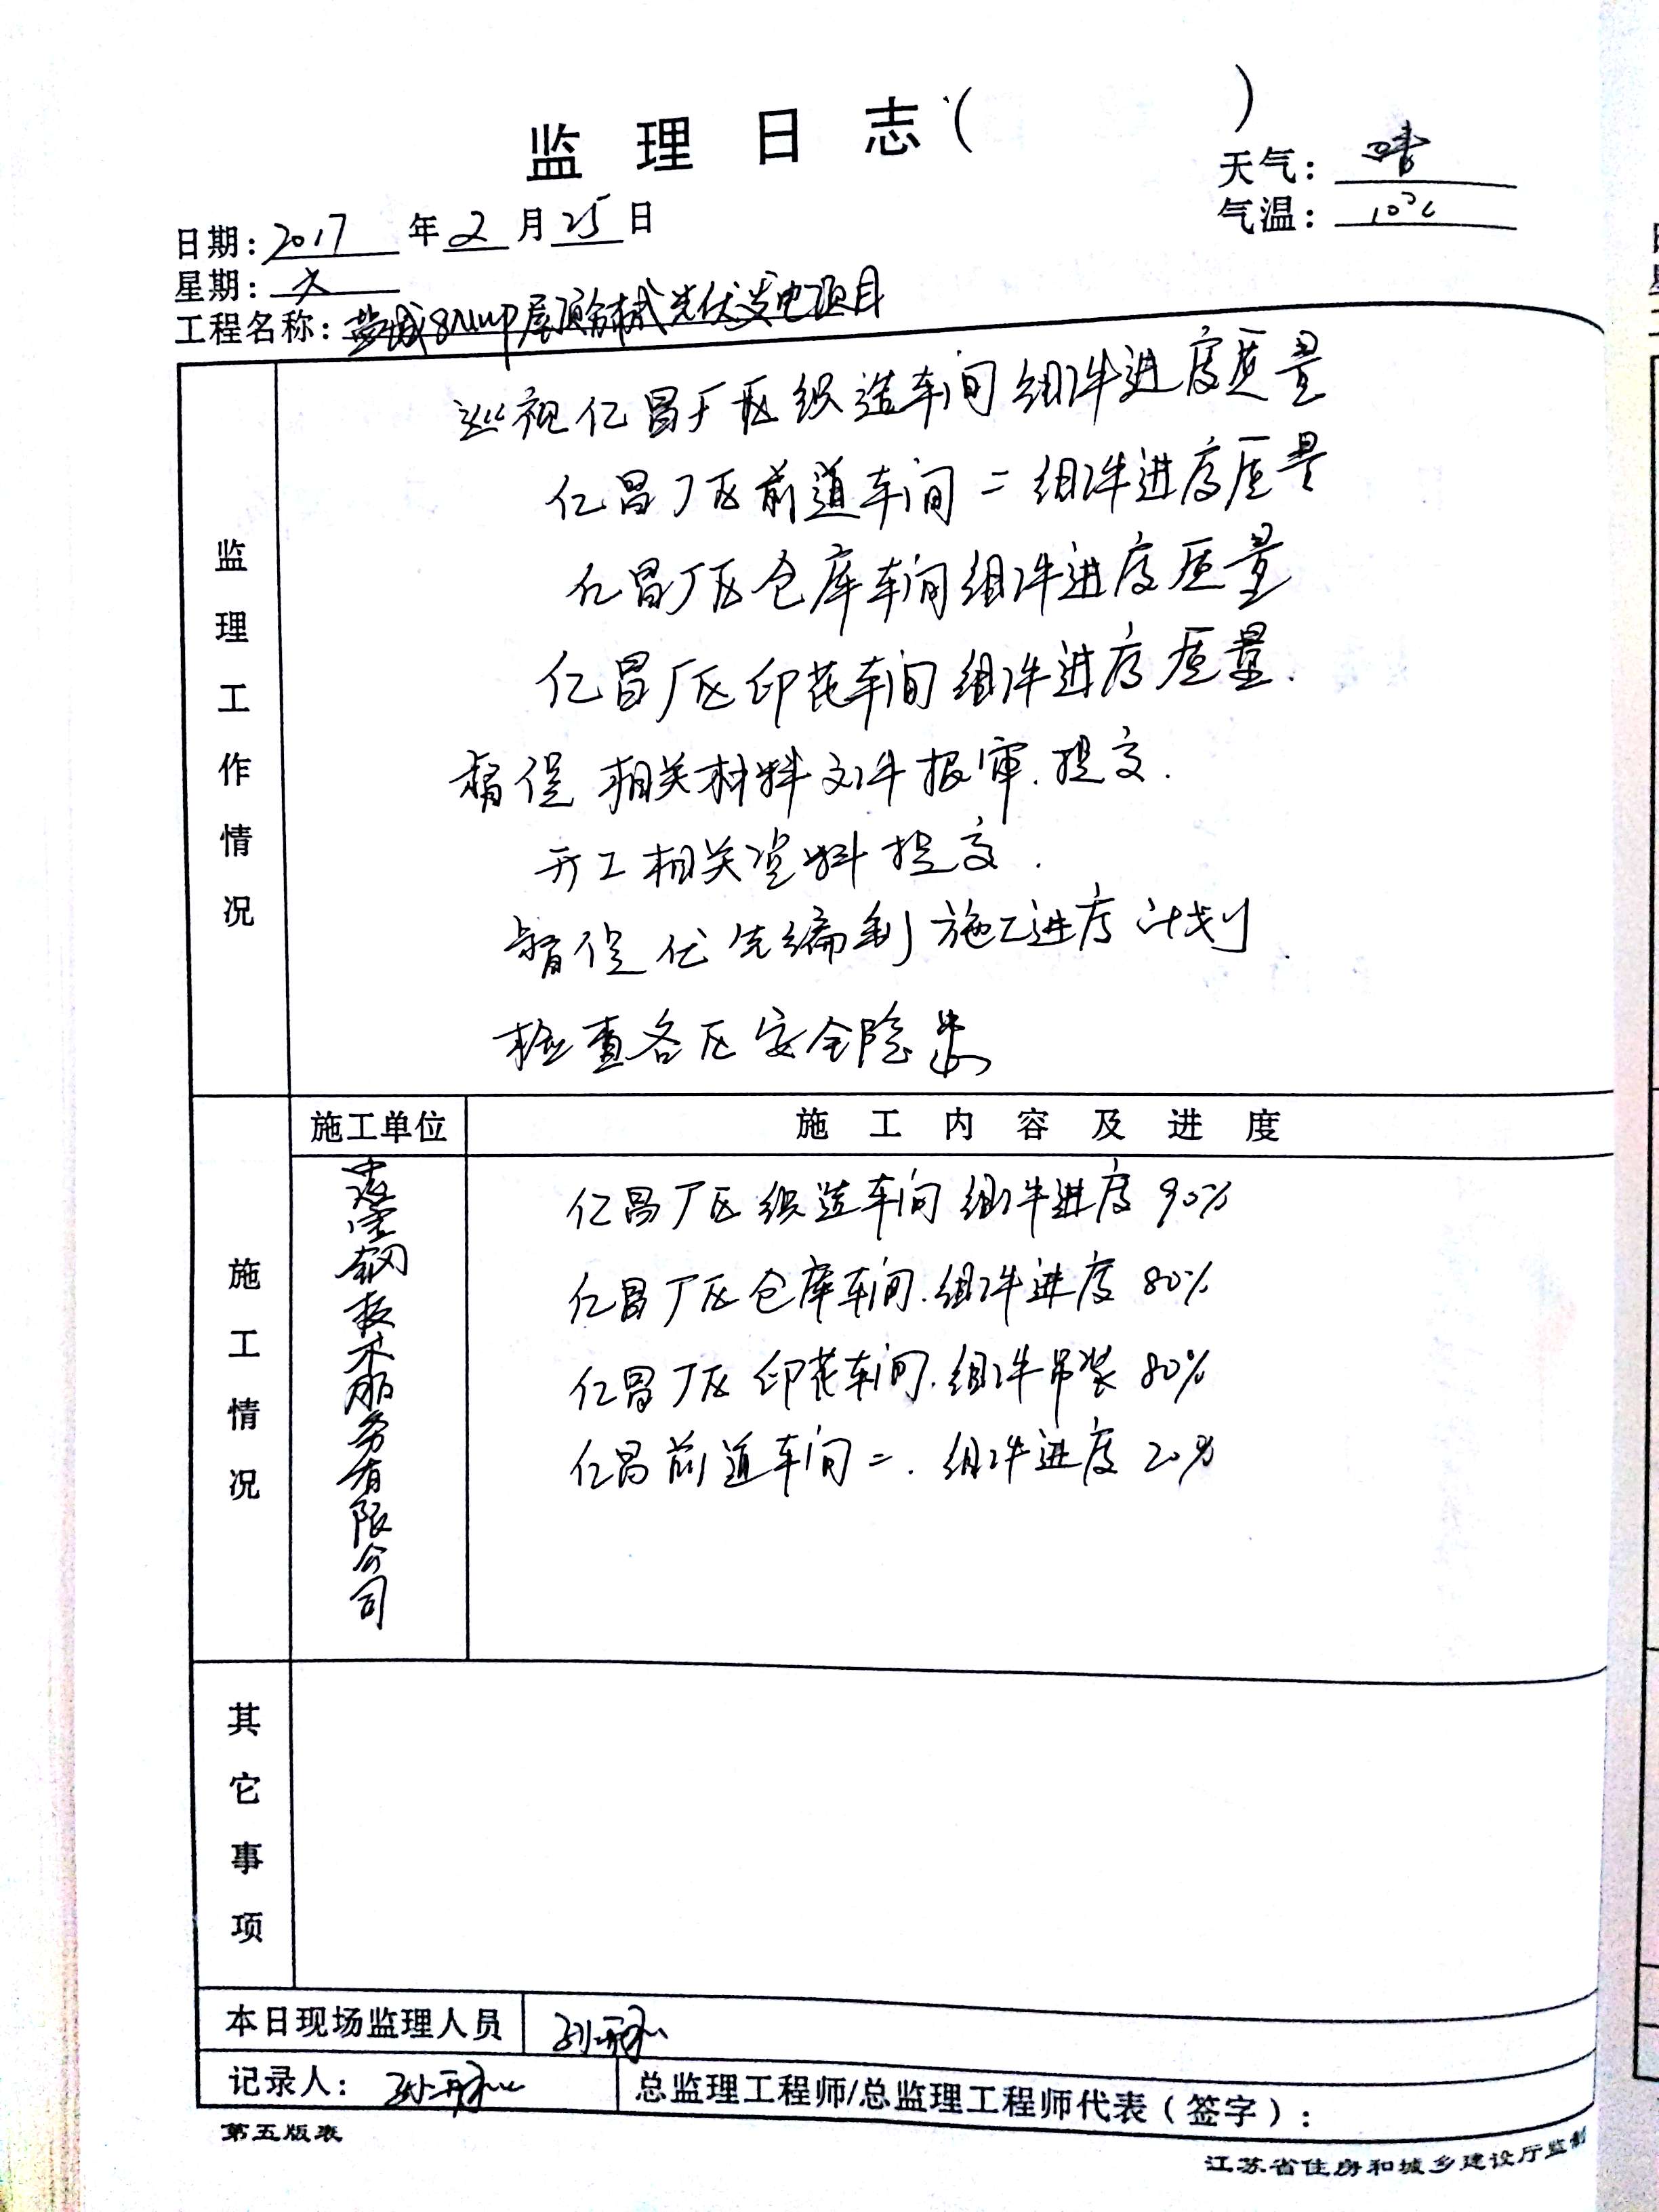 监理日志( )
天气：晴
气温：10℃
日期：2017年2月25日
星期：六
工程名称：盐城8MWP屋顶分布式光伏发电项目
监理工作情况
巡视亿昌厂区织造车间组件进度质量
亿昌厂区前道车间二组件进度质量
亿昌厂区仓库车间组件进度质量
亿昌厂区印花车间组件进度质量.
督促相关材料文件报审.提交.
开工相关资料提交.
督促优先编制施工进度计划.
检查各区安全隐患
施工情况
施工单位
施工内容及进度
宝钢技术服务有限公司
亿昌厂区织造车间组件进度90%
亿昌厂区仓库车间.组件进度80%
亿昌厂区印花车间.组件吊装80%
亿昌前道车间二.组件进度20%
其它事项
本日现场监理人员
记录人：
总监理工程师/总监理工程师代表（签字）：
第五版表
江苏省住房和城乡建设厅监制